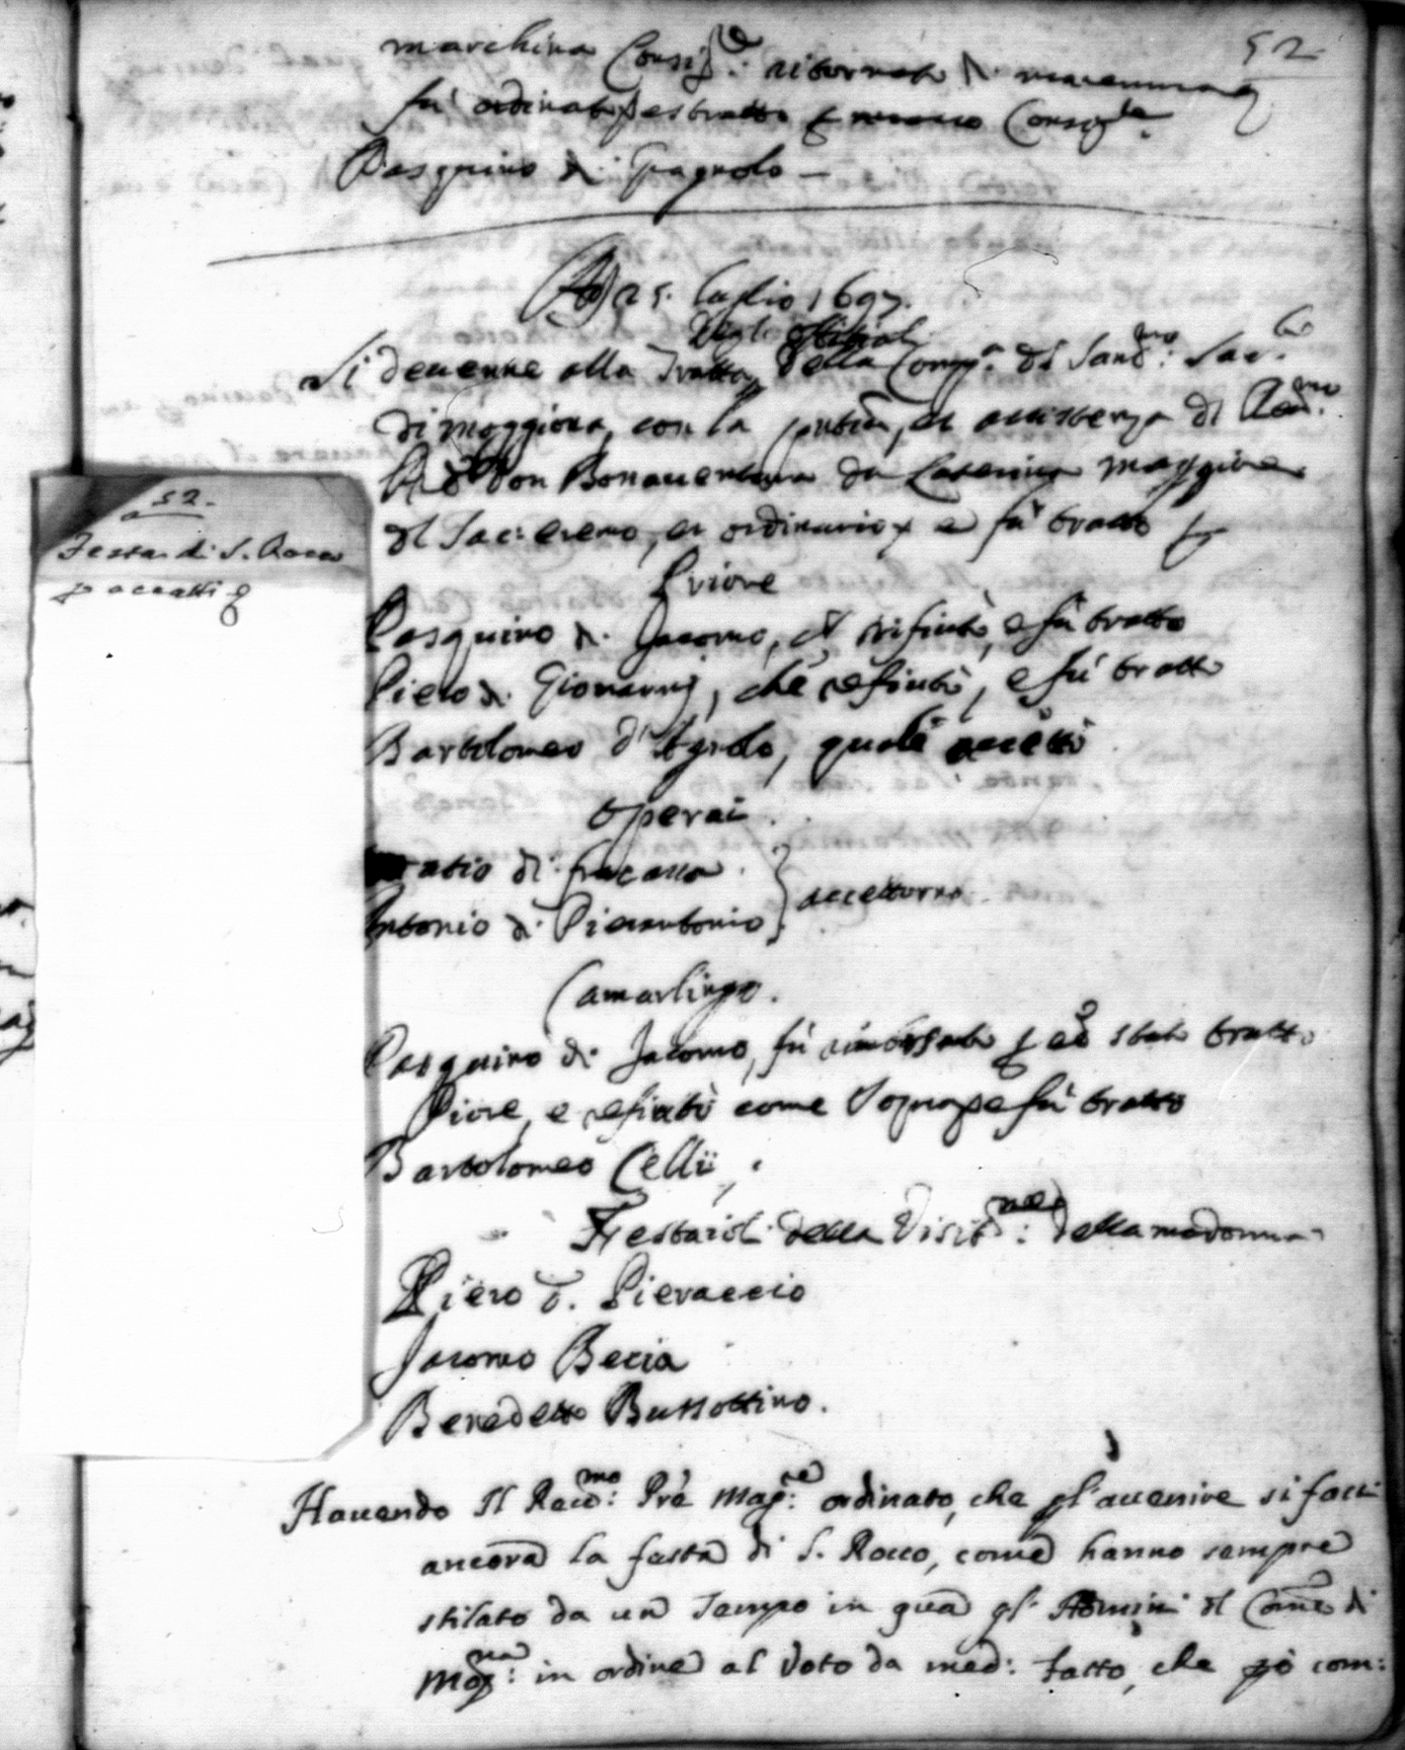 52
marchino Consig.re ritornato di maremma
fu ordinato s'estratto p nuovo Consig.re
Pasquino di Gpagnolo —
Adj 25. luglio 1697.
degli offitiali
Si devenne alla Tratta, della Comp.a del Sant.mo: Sac.to
di moggiona, con la putìa, et assistenza del Rev.mo
P.d Don Bonaventura da Caterina maggiore
del Sac: eremo, et ordinario, e fu tratto p
Priore
Pasquino di Jacomo, et rifiutò, e fù tratto
Piero di Giovannj, che refiutò, e fù tratto
Bartolomeo d'Agnolo, quale accettò
Operai.
Oratio di fracasso
Antonio di Pierantonio } accettorno
Camarlingo.
Pasquino di Jacomo, fù rimborsato p eẽ stato tratto
Piore, e refiutò come sopra, e fù tratto
Bartolomeo Cellij,
Festaioli della Visit.ne: della madonna
Piero d. Pieraccio
Jacomo Becia
Benedetto Bussottino.
Havendo Il Rev.mo: Prê Mag.re: ordinato, che pl'avenire si facci
ancora la fasta di S. Rocco, come hanno sempre
stilato da un Tempo in qua gl' Homini del Comẽ di
Mog.na: in ordine al Voto da med: fatto, che pò com:
52.
Festa di S. Rocco
p accatti